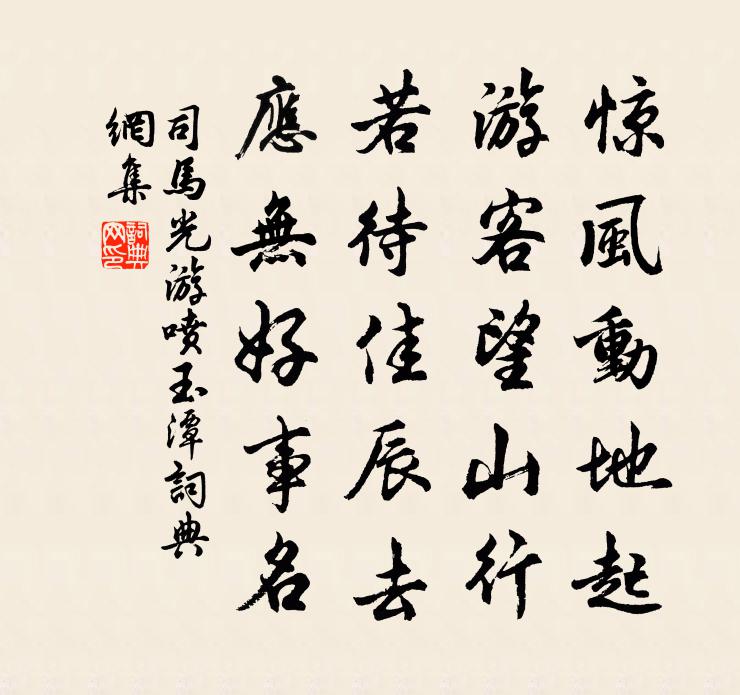 惊風動地起
游客望山行
若待佳辰去
應無好事名
司馬光游喷玉潭詞典
網集
詞典网印